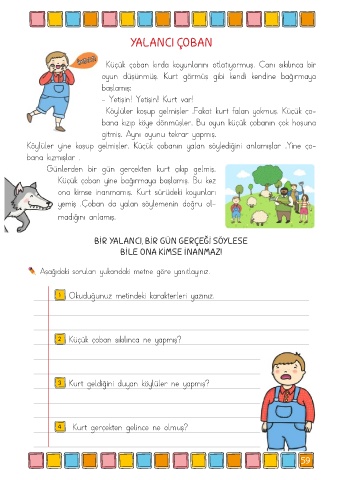 YALANCI ÇOBAN
Küçük çoban kırda koyunlarını otlatıyormuş. Canı sıkılınca bir
oyun düşünmüş. Kurt görmüş gibi kendi kendine bağırmaya
başlamış:
- Yetişin! Yetişin! Kurt var!
Köylüler koşup gelmişler .Fakat kurt falan yokmuş. Küçük ço-
bana kızıp köye dönmüşler. Bu oyun küçük çobanın çok hoşuna
gitmiş. Aynı oyunu tekrar yapmış.
Köylüler yine koşup gelmişler. Küçük çobanın yalan söylediğini anlamışlar .Yine ço-
bana kızmışlar .
Günlerden bir gün gerçekten kurt çıkıp gelmiş.
Küçük çoban yine bağırmaya başlamış. Bu kez
ona kimse inanmamış. Kurt sürüdeki koyunları
yemiş .Çoban da yalan söylemenin doğru ol-
madığını anlamış.
BİR YALANCI, BİR GÜN GERÇEĞİ SÖYLESE
BİLE ONA KİMSE İNANMAZ!
Aşağıdaki soruları yukarıdaki metne göre yanıtlayınız.
1. Okuduğunuz metindeki karakterleri yazınız.
2. Küçük çoban sıkılınca ne yapmış?
3. Kurt geldiğini duyan köylüler ne yapmış?
4. Kurt gerçekten gelince ne olmuş?
59